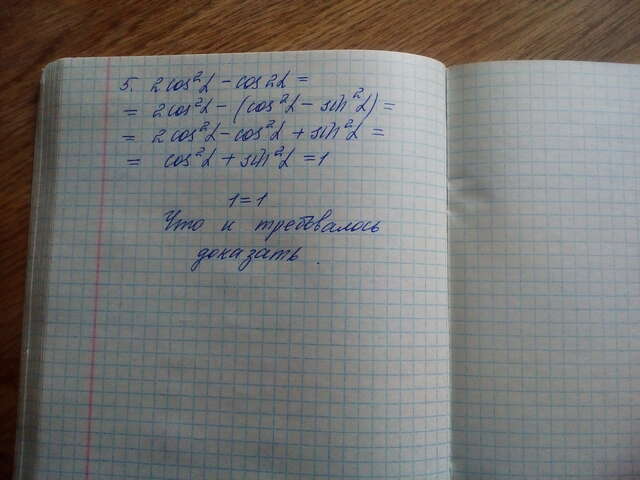 5. 2cos²α - cos2α =
= 2cos²α - (cos²α - sin²α) =
= 2cos²α - cos²α + sin²α =
= cos²α + sin²α = 1
1 = 1
Что и требовалось
доказать.